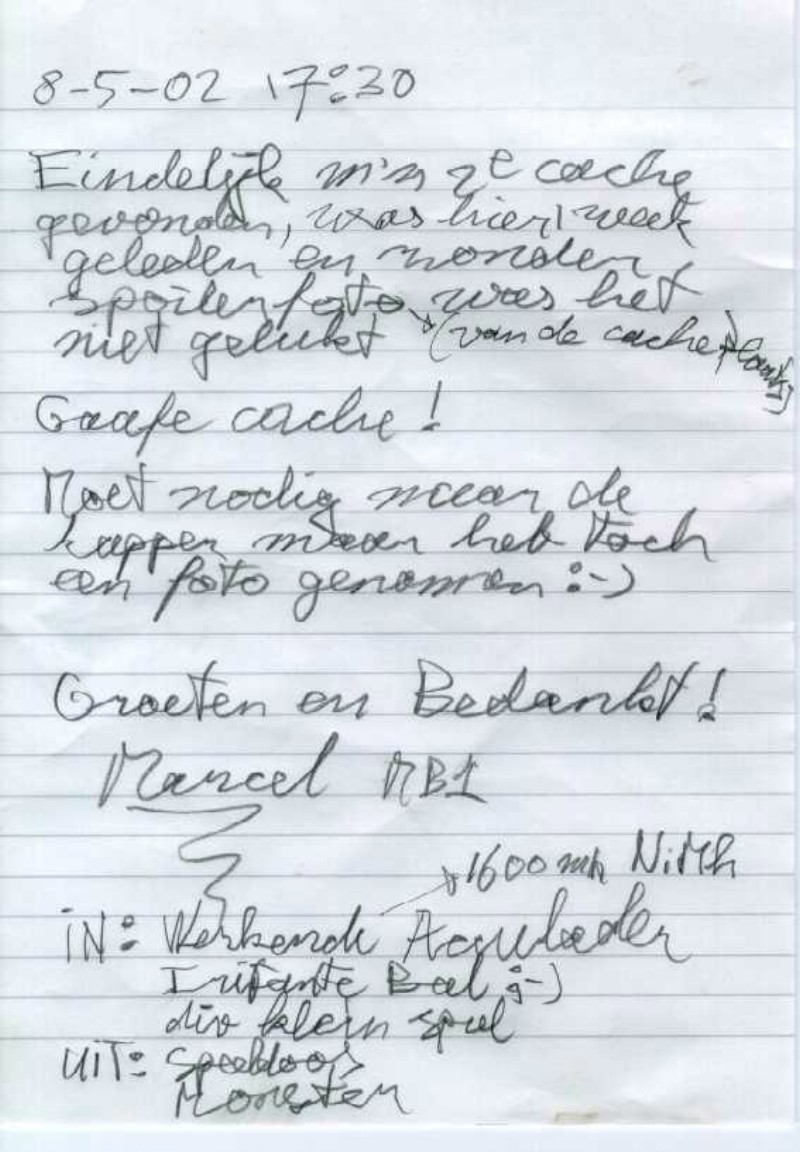 8-5-02 17:30
Eindelijk m'n 2e cache
gevonden, was hier 1 week
geleden en zonder
spoilerfoto was het
niet gelukt (van de cacheplaats)
Gaafe cache!
Moet nodig naar de
kapper maar heb toch
een foto genomen :-)
Groeten en Bedankt!
Marcel MB1
1600 mh NiMh
IN: Werkende Acculader
Iritante Bal ;-)
div klein spul
UIT: Speeldoos
Monster